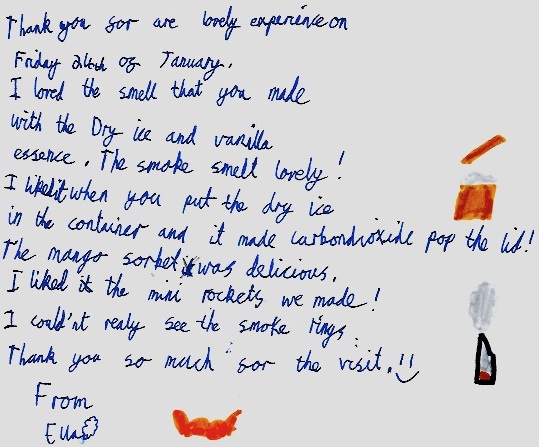 Thank you for are lovely experience on
Friday 24th of January.
I loved the smell that you made
with the Dry ice and vanilla
essence. The smoke smell lovely!
I liked it when you put the dry ice
in the container and it made carbondioxide pop the lid!
The mango sorbet was delicious.
I liked the mini rockets we made!
I could'nt realy see the smoke rings.
Thank you so much for the visit.!!
From
Ella